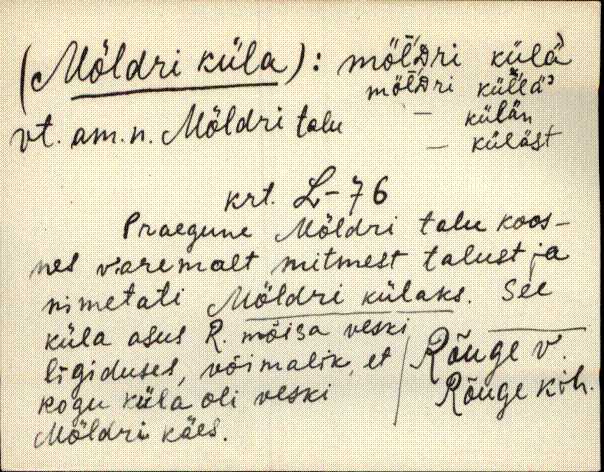 (Möldri küla): möl̄Dri külä
möl̄Dri küllä
vt. am.n. Möldri talu — külän
— küläst
krt. L-76
Praegune Möldri talu koos-
nes varemalt mitmest talust ja
nimetati Möldri külaks. See
küla asus R. mõisa veski
ligiduses, võimalik, et
kogu küla oli veski
Möldri käes.
Rõuge v.
Rõuge kih.